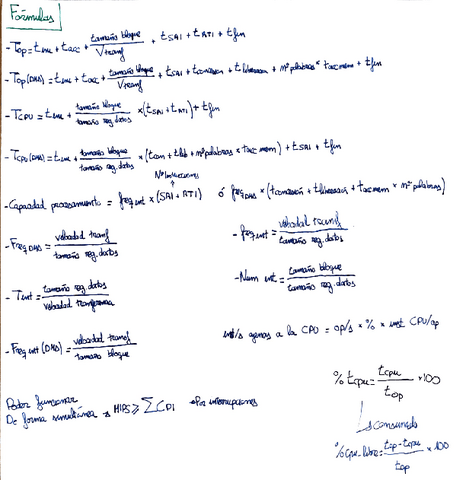 Fórmulas
- Top = tini + tacc + tamaño bloque / Vtransf + tSAI + tRTI + tfin
- Top(DMA) = tini + tacc + tamaño bloque / Vtransf + tSAI + tconexion + tliberacion + nº palabras * taccmem + tfin
- TCPU = tini + tamaño bloque / tamaño reg. datos × (tSAI + tRTI) + tfin
- TCPU(DMA) = tini + tamaño bloque / tamaño reg. datos × (tcon + tlib + nº palabras × tacc mem) + tSAI + tfin
Nº Instrucciones
- Capacidad procesamiento = freq int × (SAI + RTI) ó freq DMA × (tconexión + tliberación + taccmem × nº palabras)
- Freq DMA = velocidad transf / tamaño reg. datos
- freq int = velocidad transf / tamaño reg. datos
- Tint = tamaño reg. datos / velocidad transferencia
- Num int = tamaño bloque / tamaño reg. datos
- Freq int (DMA) = velocidad transf / tamaño bloque
inst/s ajenas a la CPU = op/s × % × inst CPU/op
% tcpu = tcpu / top × 100
Poder funcionar
De forma simultánea → MIPS ≥ ∑ CPI → Por interrupciones
→ consumido
% cpu-libre = top - tcpu / top × 100